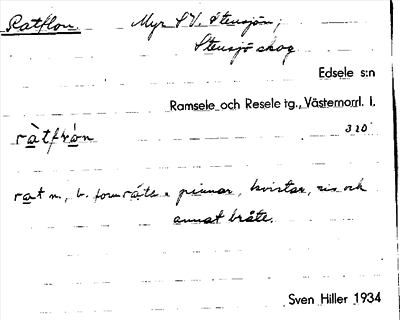 Ratflon. Myr SV. Stensjön,
Stensjö skog
Edsele s:n
Ramsele och Resele tg., Västernorrl. l.
320
ràtfrón
rat m., b. form ráte = pinnar, kvistar, ris och
annat bråte.
Sven Hiller 1934